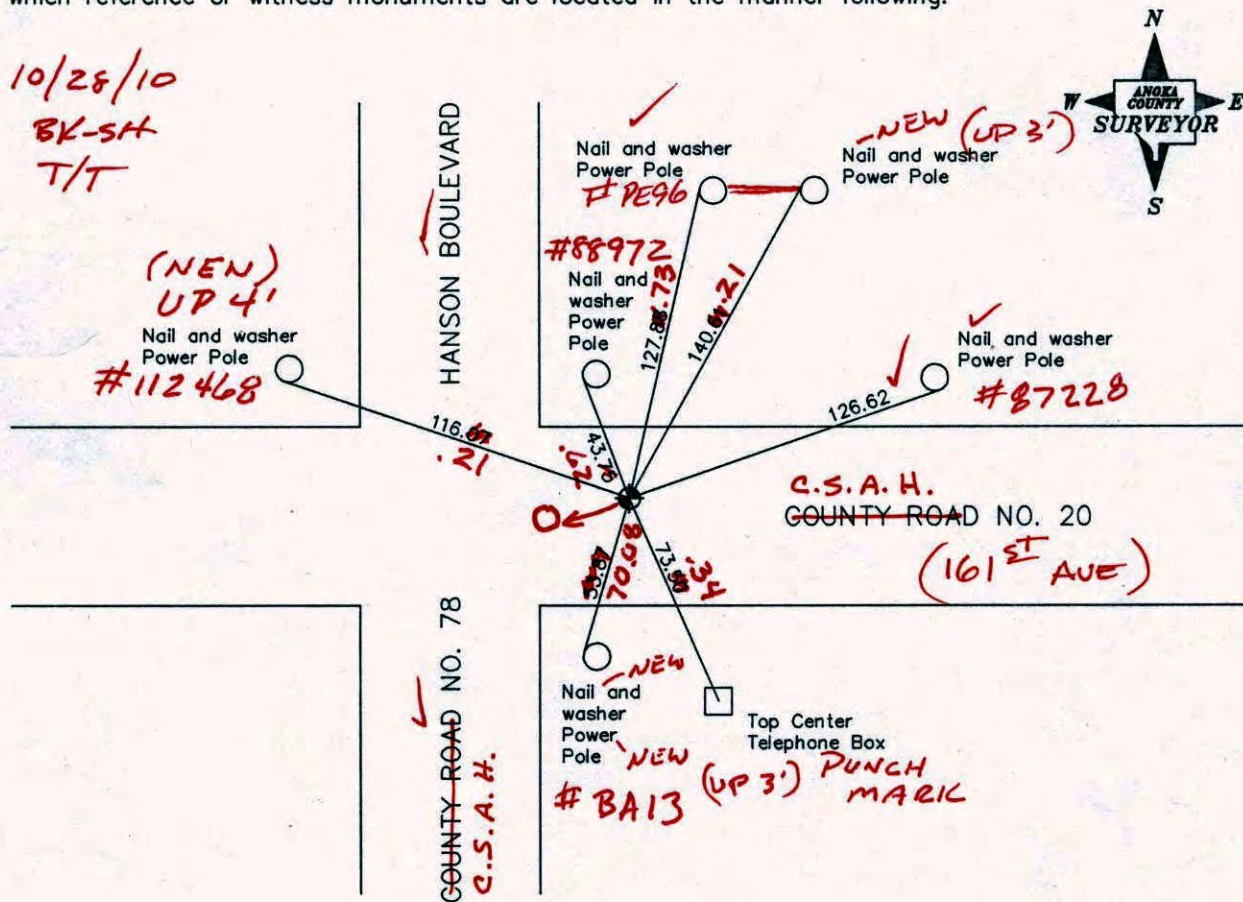 which reference or witness monuments are located in the manner following:
N
W ANOKA COUNTY E
SURVEYOR
S
10/28/10
BK-SH
T/T
HANSON BOULEVARD
Nail and washer
Power Pole
# PE96
NEW (UP 3')
Nail and washer
Power Pole
(NEW)
UP 4'
Nail and washer
Power Pole
#112468
#88972
Nail and
washer
Power
Pole
127.
.73
140.
.21
Nail and washer
Power Pole
#87228
126.62
116.
.21
43.76
.62
C.S.A.H.
COUNTY ROAD NO. 20
(161ST AVE)
70.08
73.
.34
COUNTY ROAD NO. 78
C.S.A.H.
NEW
Nail and
washer
Power
Pole NEW
# BA13
(UP 3')
Top Center
Telephone Box
PUNCH
MARK